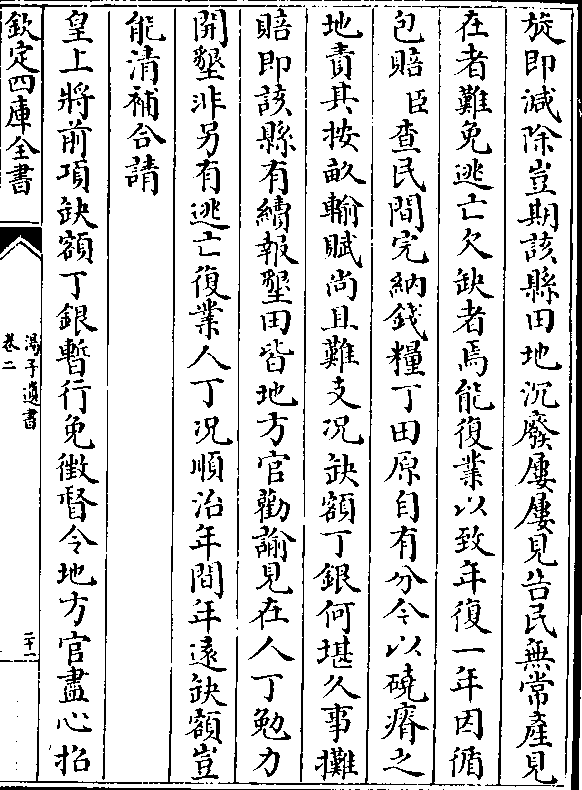 旋即減除豈期該縣田地沉廢屢屢見告民無常產見
在者難免逃亡欠缺者焉能復業以致年復一年因循
包賠臣查民間完納錢糧丁田原自有分今以磽瘠之
地責其按畝輸賦尚且難支况缺額丁銀何堪久事攤
賠即該縣有續報墾田皆地方官勸諭見在人丁勉力
開墾非另有逃亡復業人丁况順治年間年遠缺額豈
能清補合請
皇上將前項缺額丁銀暫行免徵督令地方官盡心招
欽定四庫全書
湯子遺書
卷二
二十一